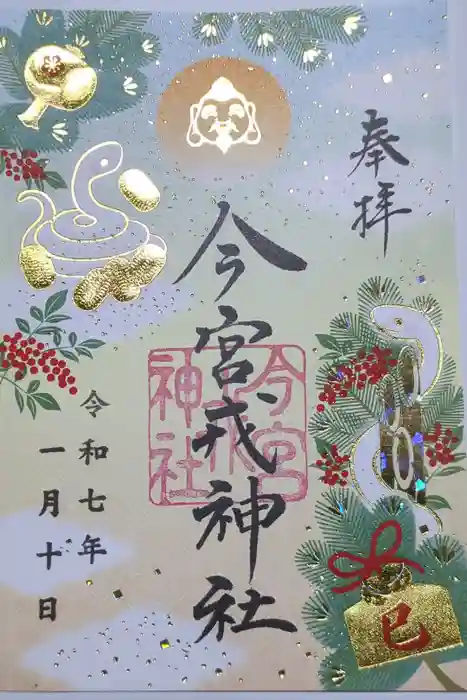 奉拝
今宮戎神社
今宮
戎
神社
令和七年
一月十日
巳